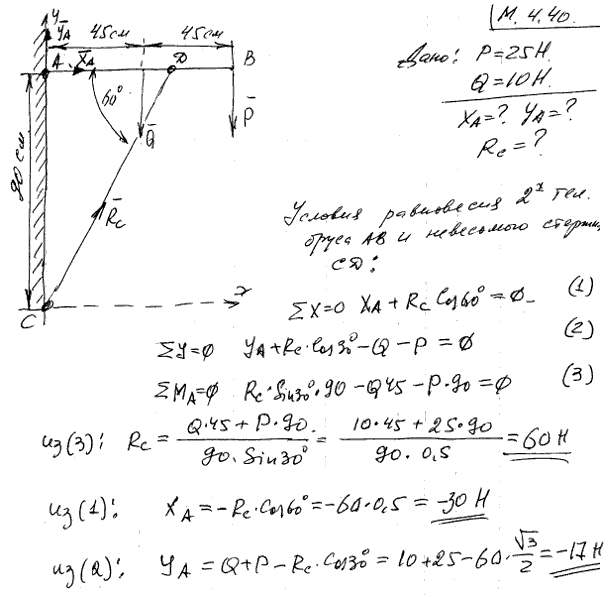 М. 4.40.
Y
Y̅A
45см
45см
A
X̅A
D
B
60°
Q̅
P̅
90 см
R̅c
C
x
Дано: P=25Н.
Q=10Н.
XA=? YA=?
Rc=?
Условия равновесия 2х тел.
бруса АВ и невесомого
CD:
ΣX=0 XA+Rc Cos60°=0 (1)
ΣY=0 YA+Rc·Cos30°-Q-P=0 (2)
ΣMA=0 Rc·Sin30°·90-Q45-P·90=0 (3)
из(3): Rc = (Q·45+P·90)/(90·Sin30°) = (10·45+25·90)/(90·0,5) = 60Н
из(1): XA=-Rc·Cos60°=-60·0,5=-30 Н
из(2): YA=Q+P-Rc·Cos30°=10+25-60·√3/2=-17Н